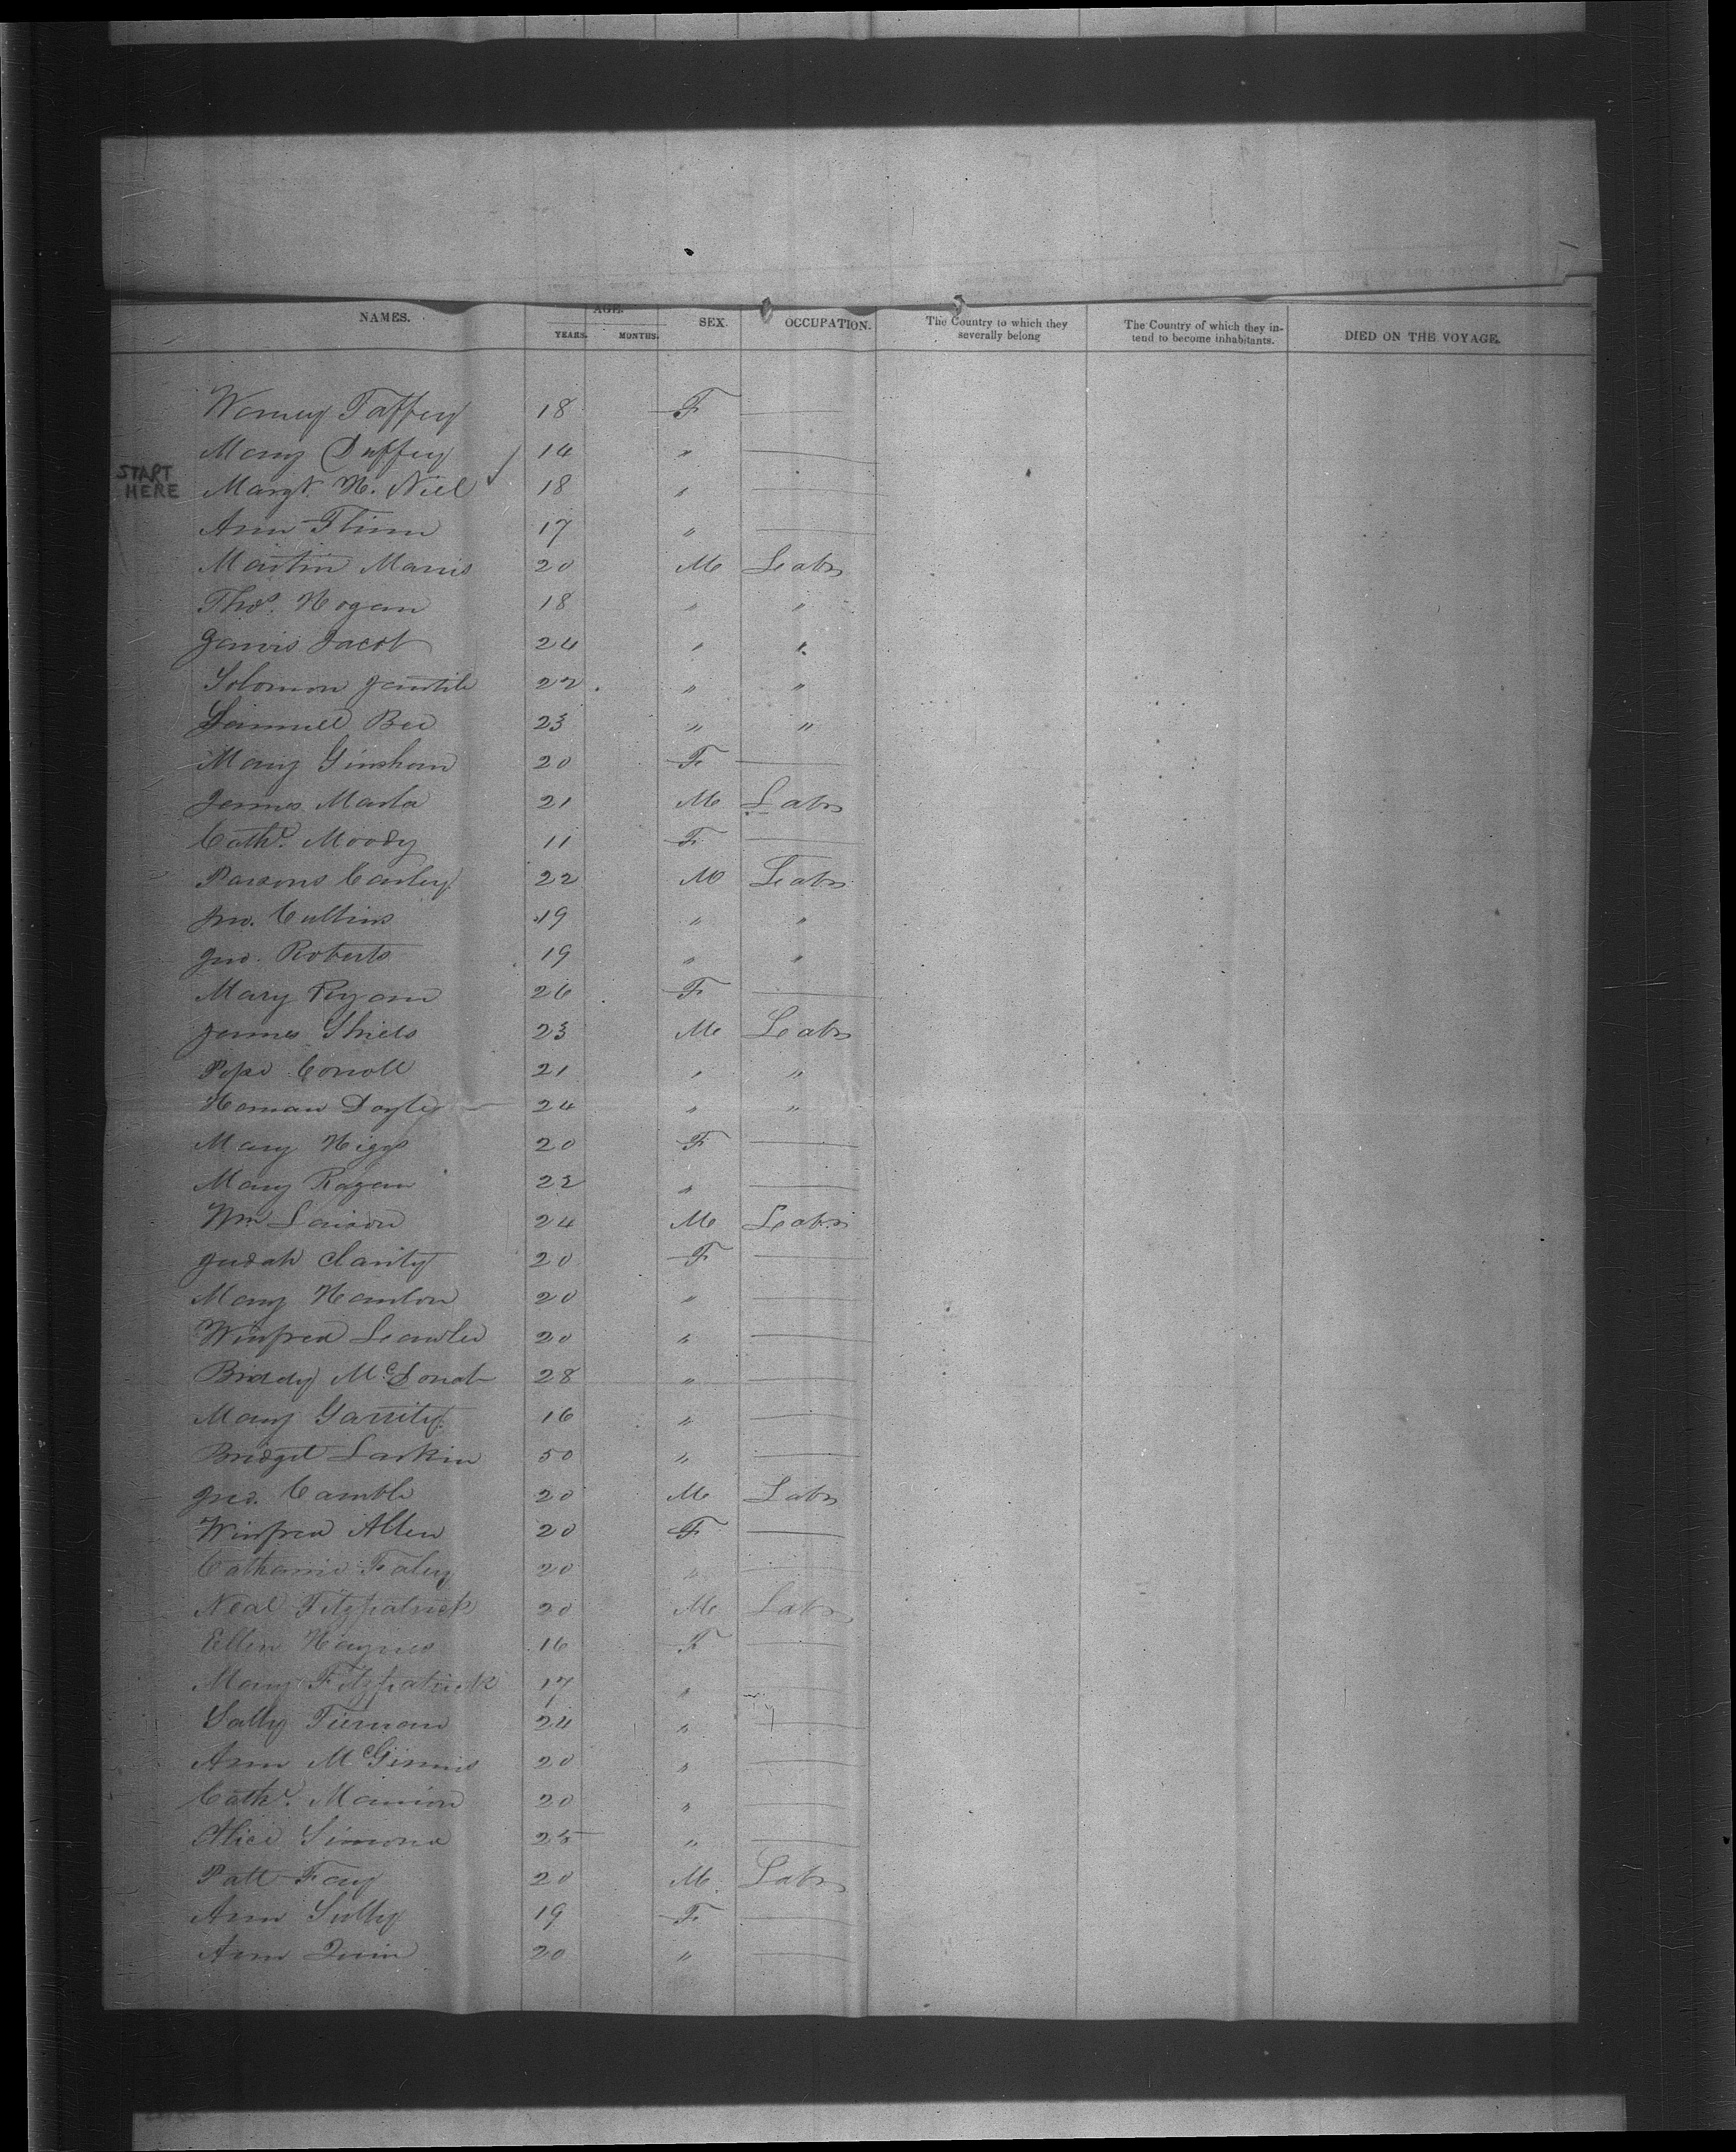 NAMES. AGE. YEARS. MONTHS. SEX. OCCUPATION. The Country to which they severally belong The Country of which they intend to become inhabitants. DIED ON THE VOYAGE.
Taffey 18 F
Mary Duffey 14 "
START HERE
Margt. H. Niel 18 "
Ann Flinn 17 "
Martin Manis 20 M Labr
Thos. Hogan 18 " "
Jarvis Jacob 24 " "
Solomon 22 " "
Samuel Bee 23 " "
Mary Ginsham 20 F
James Marla 21 M Labr
Cathe. Moody 11 F
Parsons Carley 22 M Labr
Jno. Cullins 19 " "
Jno. Roberts 19 " "
Mary Ryan 26 F
James Shiels 23 M Labr
Pope Corroll 21 " "
Doyle 24 " "
Mary Higgs 20 F
Mary Ragan 22 "
Wm 24 M Labr
Judah Clarity 20 F
Mary Hanlon 20 "
Winfred Lawler 20 "
Briddy McDonab 28 "
Mary Garrity 16 "
Bridget Larkin 50 "
Jno. Camble 20 M Labr
Winfred Allen 20 F
Catharine Faley 20 "
Neal Fitzpatrick 20 M Labr
Ellen Haynes 16 F
Mary Fitzpatrick 17 "
Sally Tiernan 24 "
Ann McGinnis 20 "
Cathe. Manion 20 "
Alice Simona 25 "
Patt Fay 20 M Labr
Ann Sully 19 F
Ann Quin 20 "